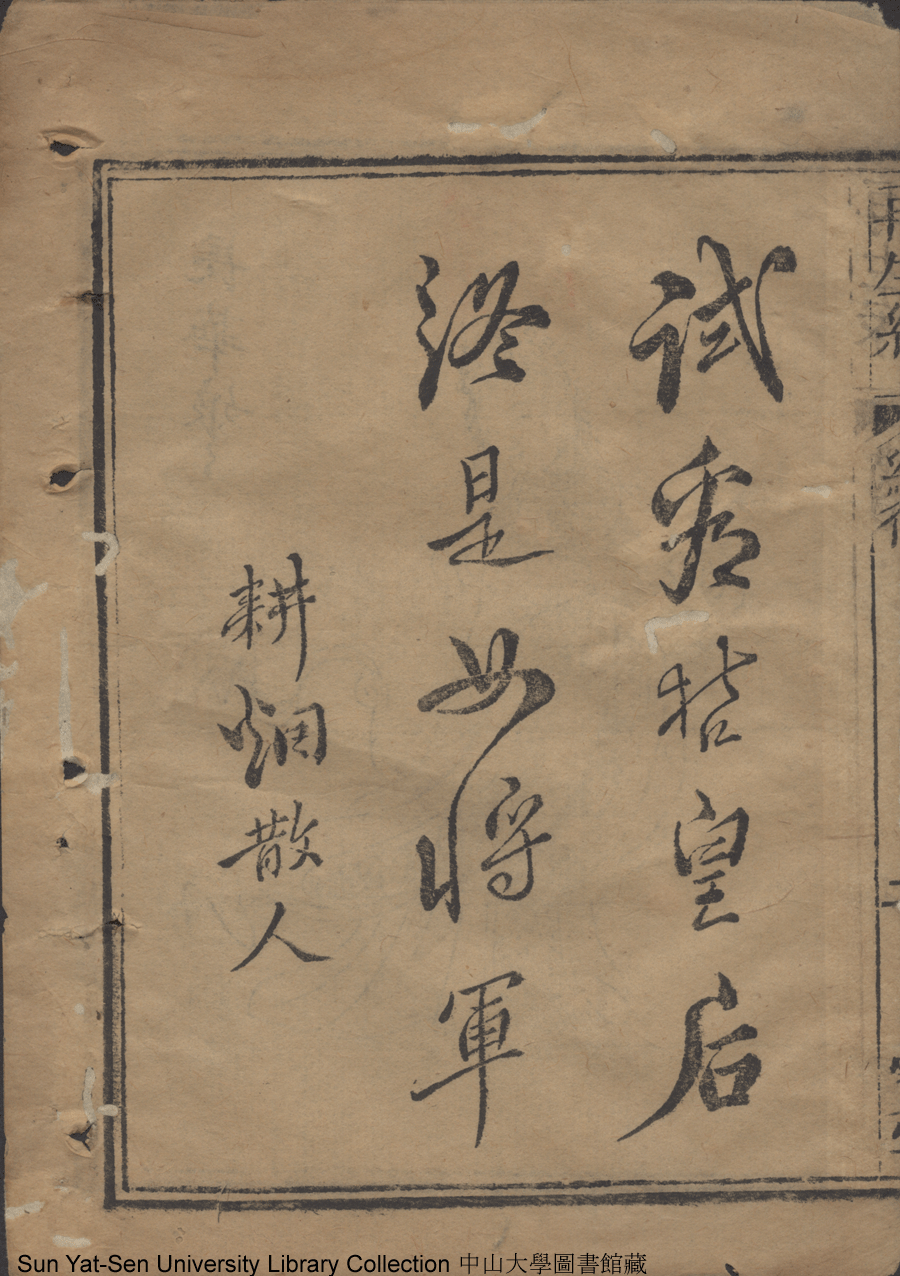 試看哲皇后
終是女將軍
耕烟散人
Sun Yat-Sen University Library Collection 中山大學圖書館藏